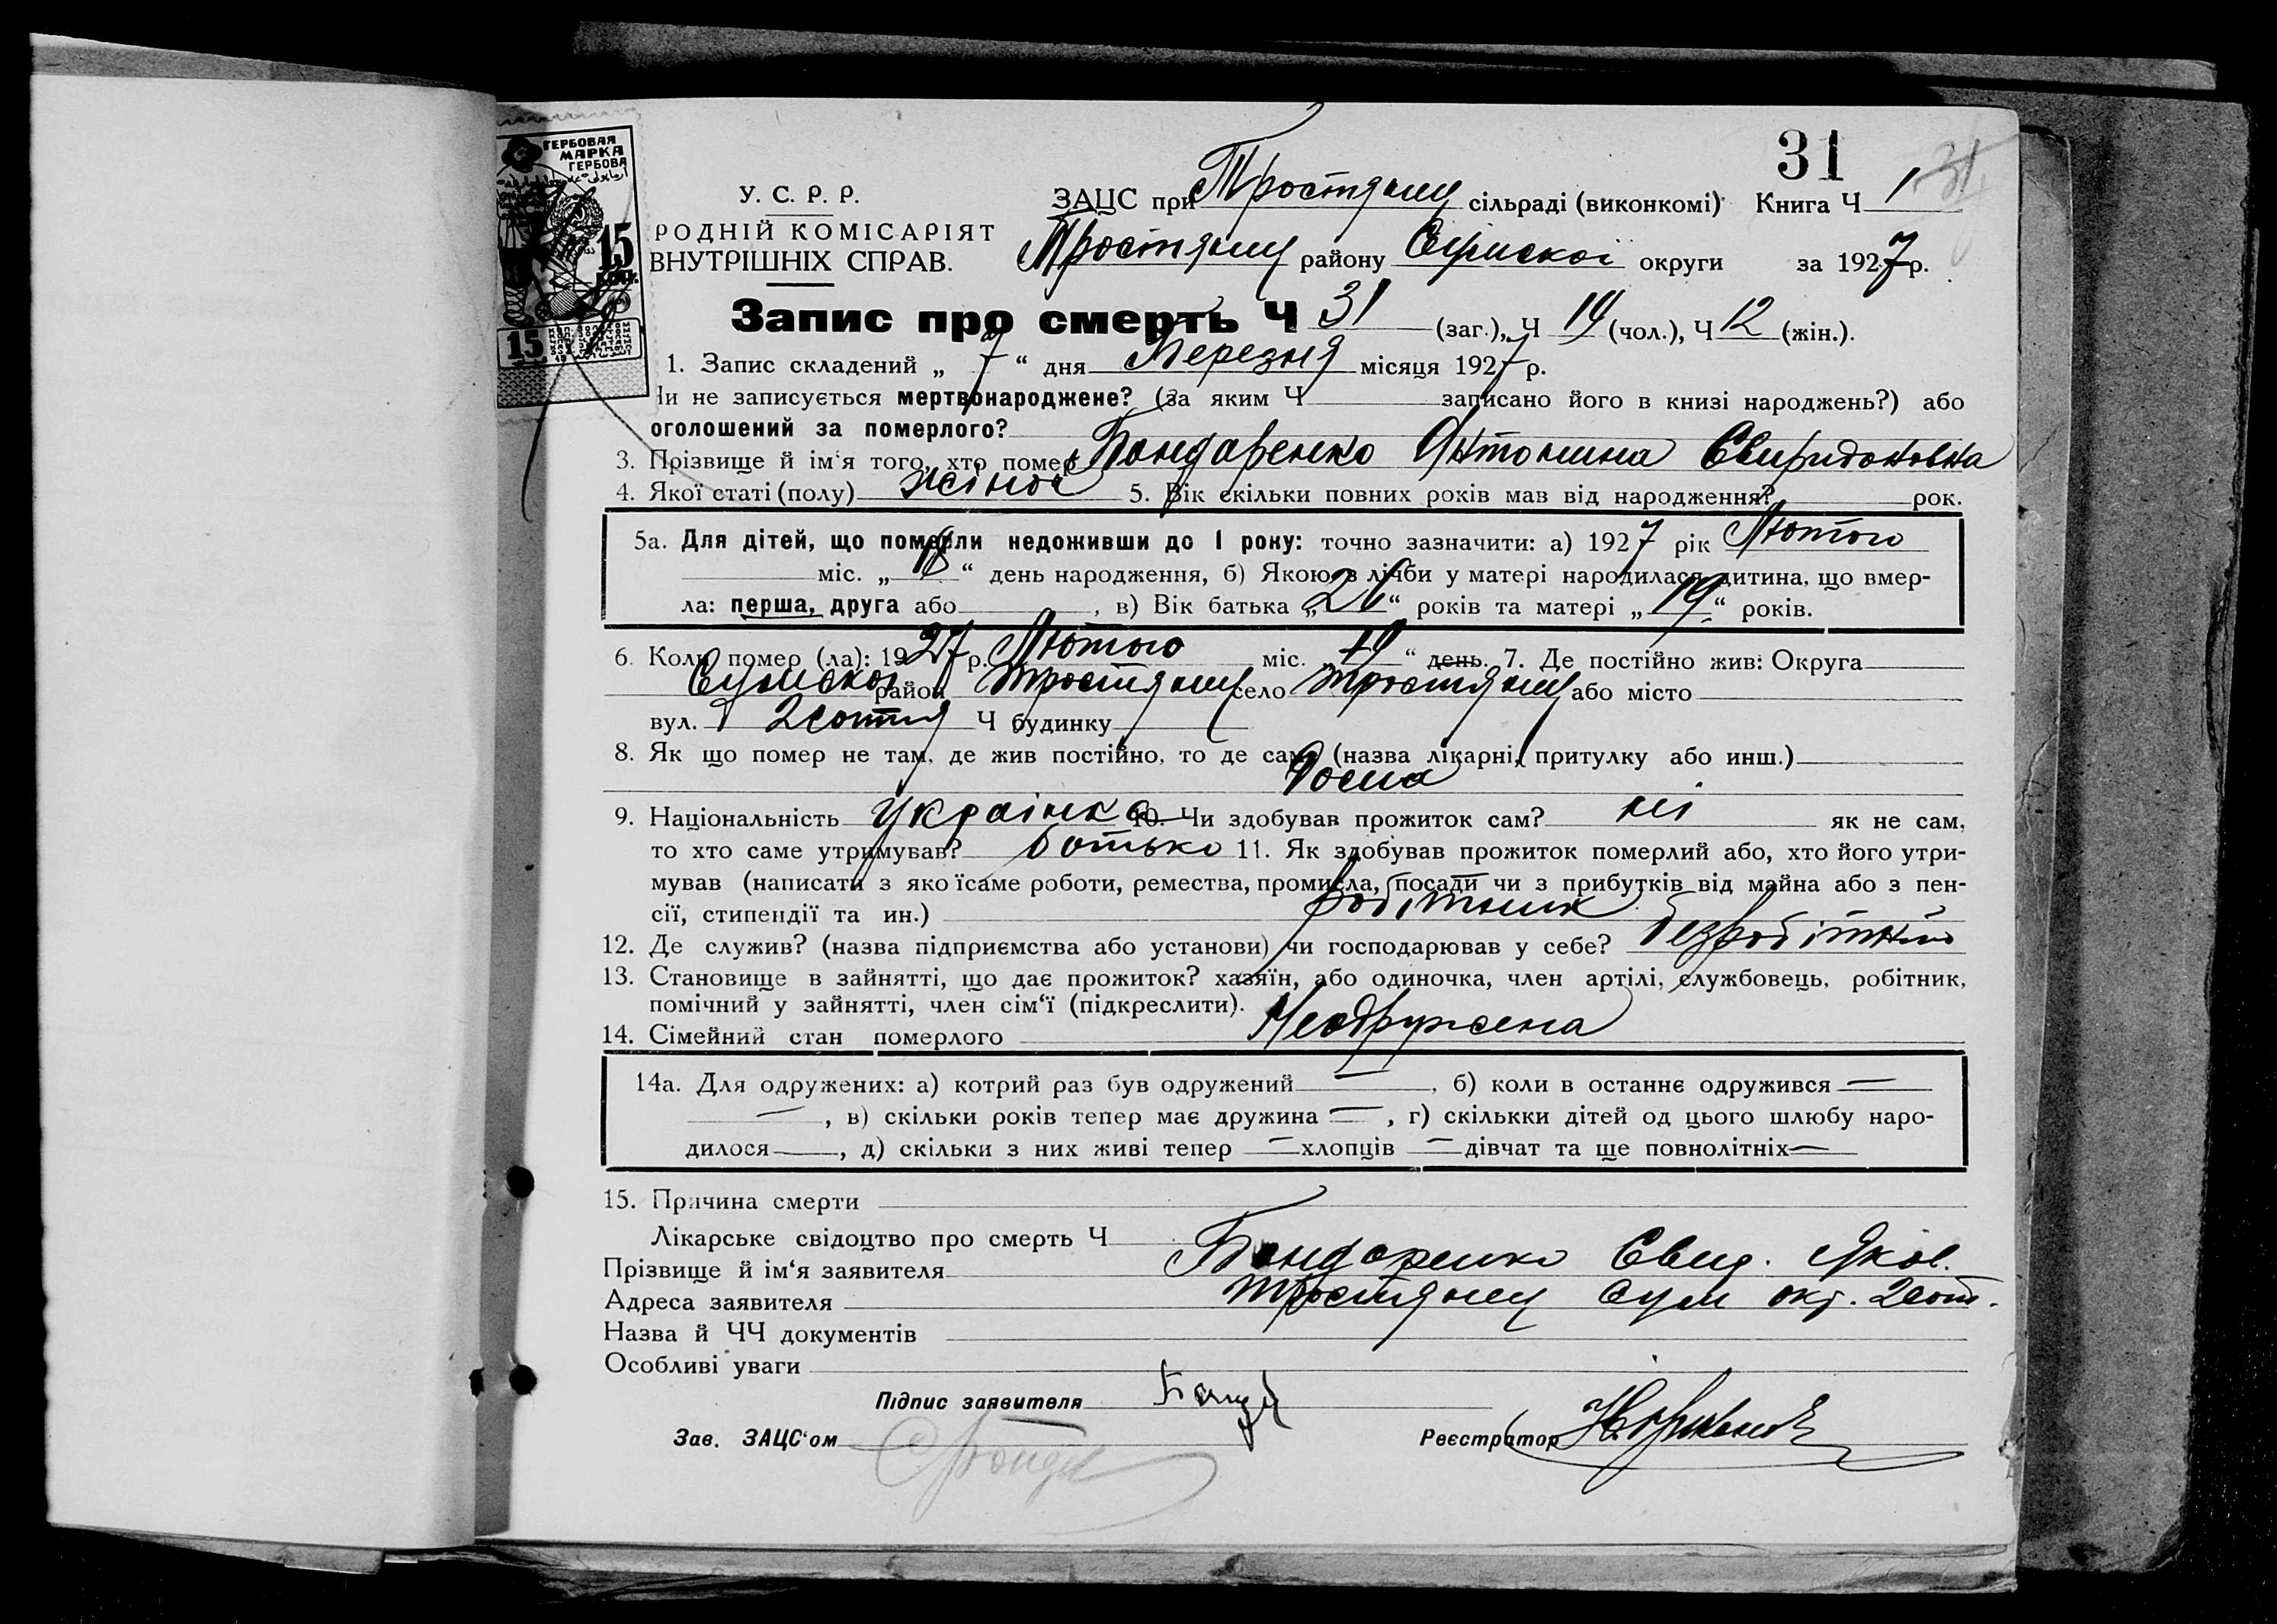 31
31
ГЕРБОВАЯ
МАРКА
ГЕРБОВА
15
КОП.
15
У. С. Р. Р.
РОДНІЙ КОМІСАРІЯТ
ВНУТРІШНІХ СПРАВ.
ЗАЦС при Тростянц сільраді (виконкомі) Книга Ч 1
Тростянц району Сумскої округи за 1927 р.
Запис про смерть Ч 31 (заг.), Ч 19 (чол.), Ч 12 (жін.).
1. Запис складений „ 7 “ дня Березня місяця 1927 р.
Чи не записується мертвонароджене? (За яким Ч записано його в книзі народжень?) або
оголошений за померлого?
3. Прізвище й ім‘я того, хто помер Бондаренко Антонина Свиридоновна
4. Якої статі (полу) жіноч 5. Вік скільки повних років мав від народження? рок.
5а. Для дітей, що померли недоживши до 1 року: точно зазначити: а) 1927 рік Лютого
міс. „ 18 “ день народження, б) Якою з лічби у матері народилася дитина, що вмер-
ла: перша, друга або , в) Вік батька „ 26 “ років та матері „ 19 “ років.
6. Коли помер (ла): 1927 р. Лютого міс. „ “ день. 7. Де постійно жив: Округа
Сумской район Тростянц село Тростянц або місто
вул. 2 сотня Ч будинку
8. Як що помер не там, де жив постійно, то де саме (назва лікарні, притулку або инш.)
Дома
9. Національність Українка 10. Чи здобував прожиток сам? ні як не сам,
то хто саме утримував? батько 11. Як здобував прожиток померлий або, хто його утри-
мував (написати з якоїсаме роботи, ремества, промисла, посади чи з прибутків від майна або з пен-
сії, стипендії та ин.) робітник
12. Де служив? (назва підприємства або установи) чи господарював у себе? безробітний
13. Становище в зайнятті, що дає прожиток? хазяїн, або одиночка, член артілі, службовець, робітник,
помічний у зайнятті, член сім‘ї (підкреслити).
14. Сімейний стан померлого Неодружена
14а. Для одружених: а) котрий раз був одружений — , б) коли в останнє одружився —
— , в) скільки років тепер має дружина — , г) скількки дітей од цього шлюбу наро-
дилося — , д) скільки з них живі тепер — хлопців — дівчат та ще повнолітніх —
15. Причина смерти
Лікарське свідоцтво про смерть Ч
Прізвище й ім‘я заявителя Бондаренко Свид. Яков.
Адреса заявителя Тростянец Сум окр. 2 сот.
Назва й ЧЧ документів
Особливі уваги
Підпис заявителя Бонд
Зав. ЗАЦС‘ом Реєстратор